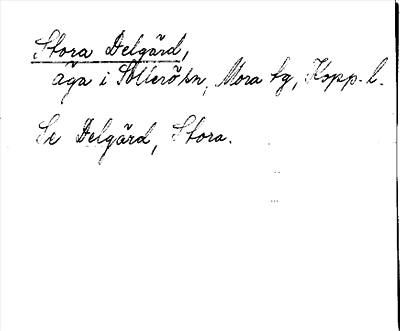 Stora Delgärd,
äga i Sollerö sn, Mora tg, Kopp. l.
Se Delgärd, Stora.